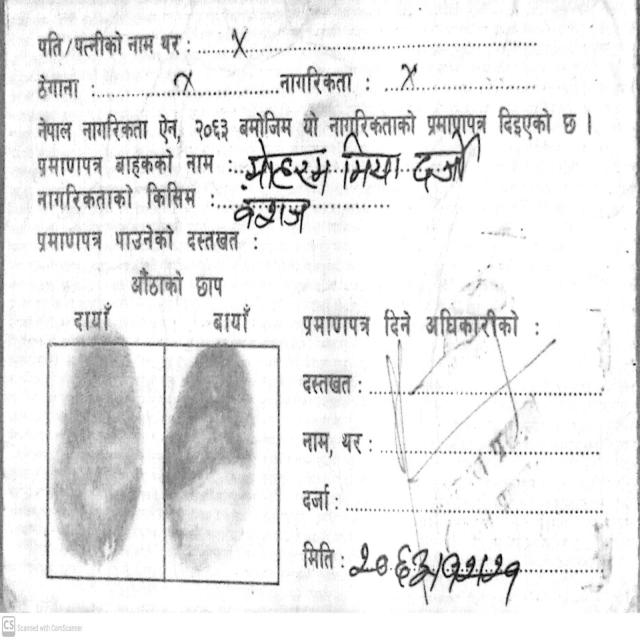 पति/पत्नीको नाम थर : X
ठेगाना : X नागरिकता : X
नेपाल नागरिकता ऐन, २०६३ बमोजिम यो नागरिकताको प्रमाणपत्र दिइएको छ ।
प्रमाणपत्र बाहकको नाम : मोहरम मिया दर्जी
नागरिकताको किसिम : वंशज
प्रमाणपत्र पाउनेको दस्तखत :
औंठाको छाप
दायाँ बायाँ
प्रमाणपत्र दिने अधिकारीको :
दस्तखत :
नाम, थर :
दर्जा :
मिति :
CS Scanned with CamScanner